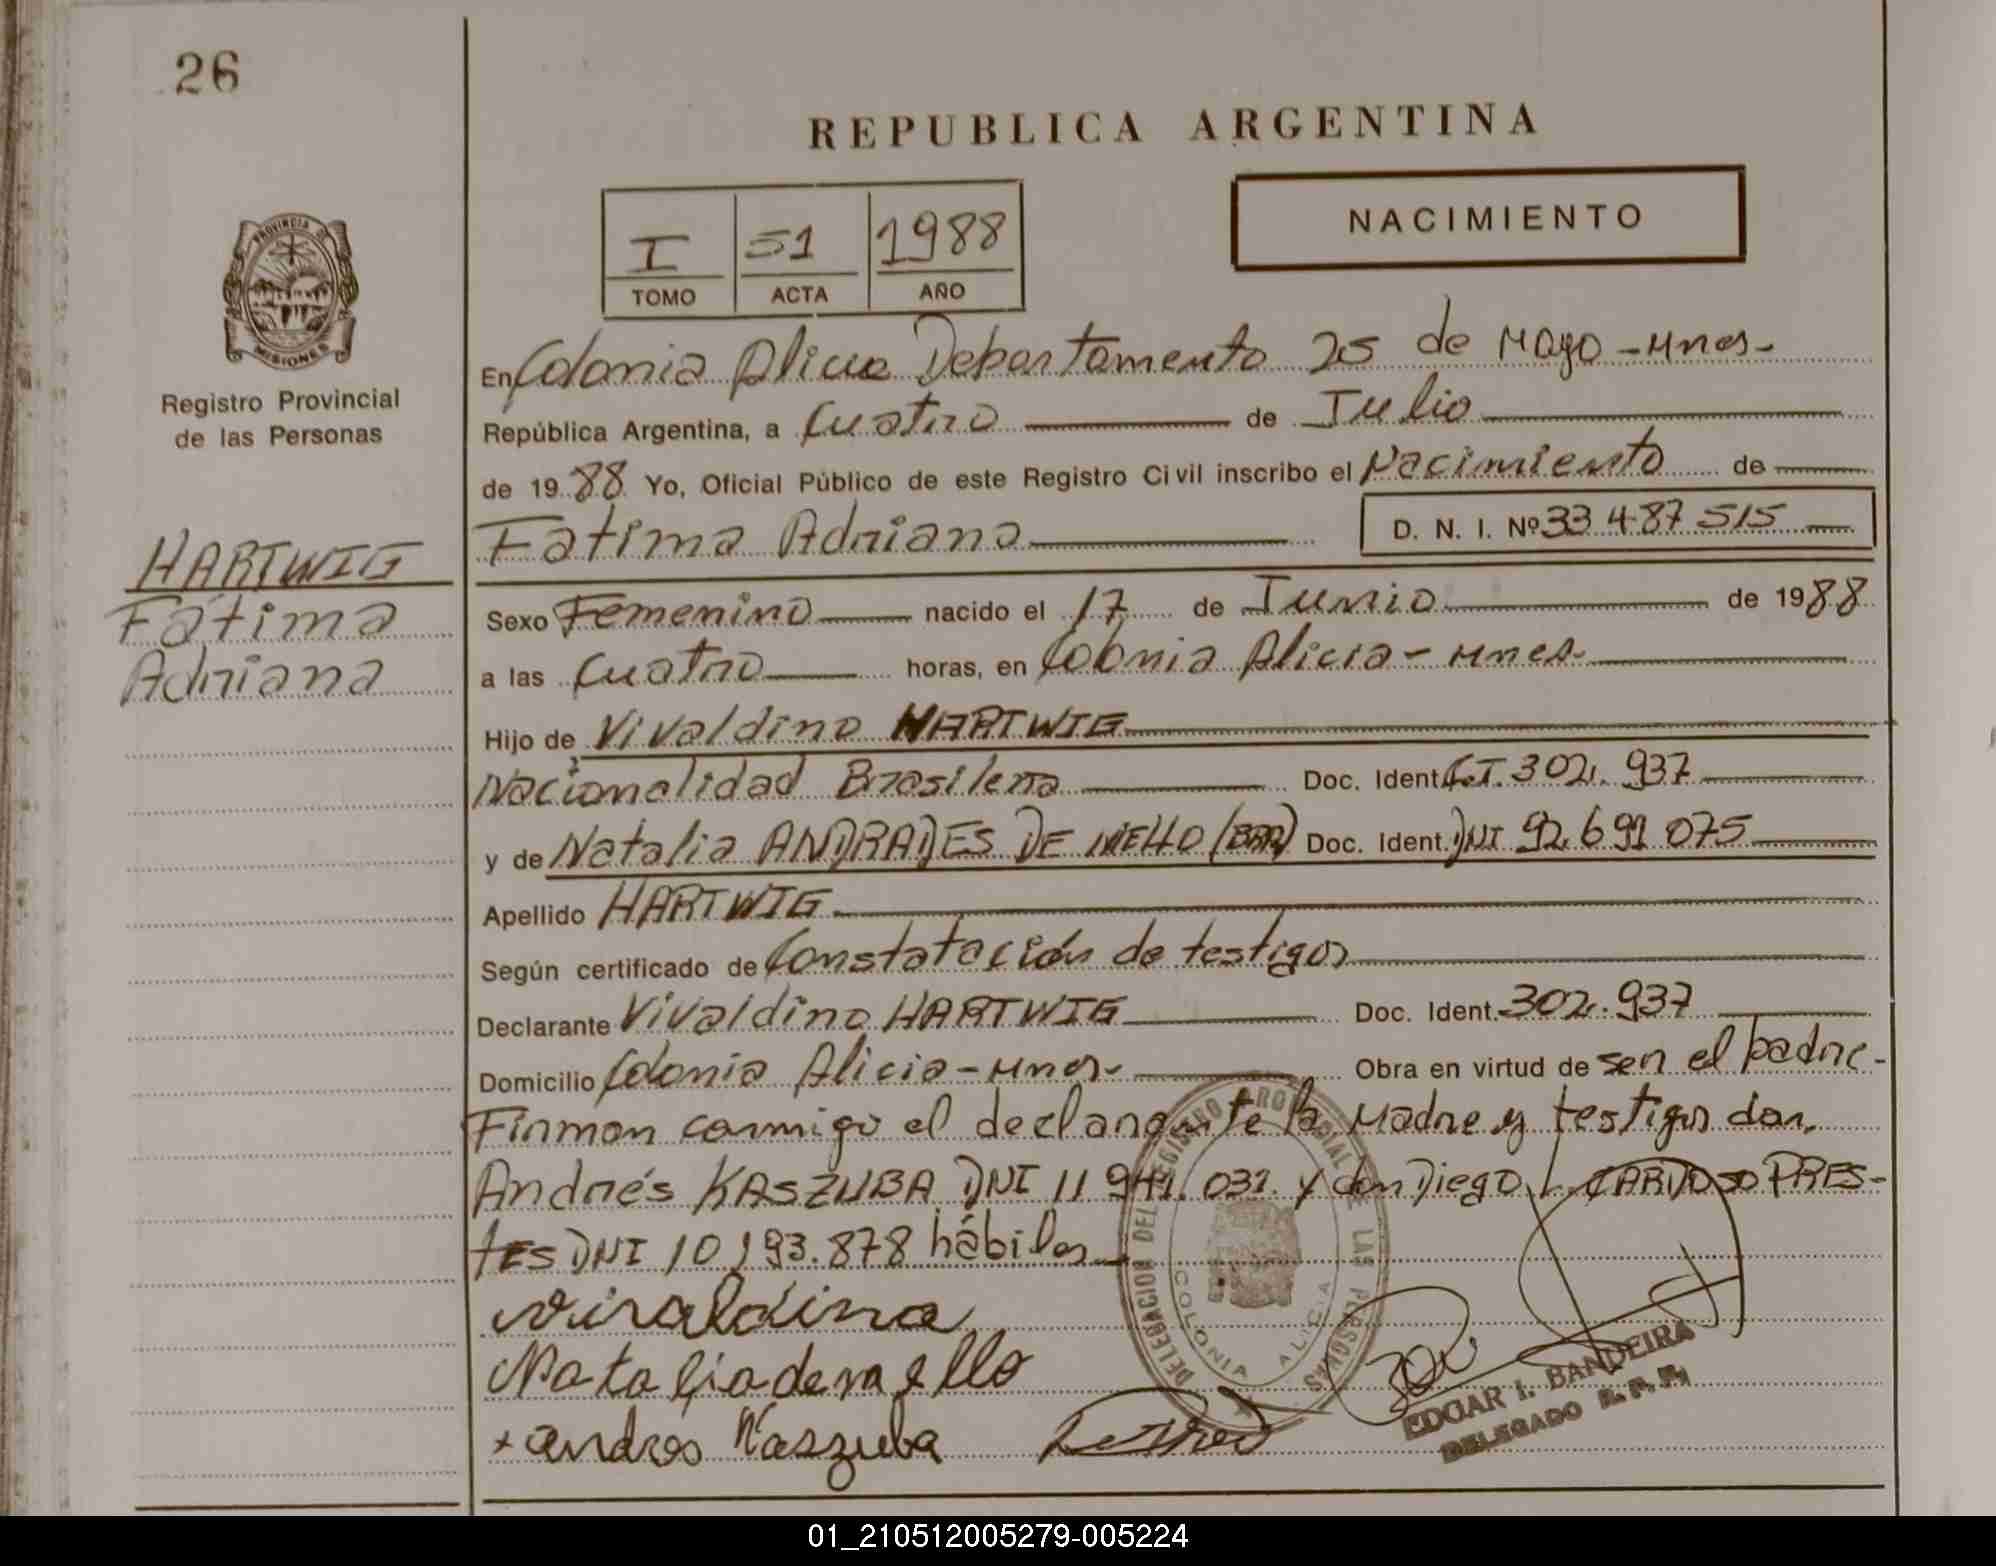 26
REPUBLICA ARGENTINA
NACIMIENTO
I 51 1988
TOMO ACTA AÑO
PROVINCIA DE
MISIONES
Registro Provincial
de las Personas
HARTWIG
Fátima
Adriana
En Colonia Alicia Departamento 25 de Mayo - Mnes-
República Argentina, a Cuatro de Julio
de 1988 Yo, Oficial Público de este Registro Civil inscribo el Nacimiento de
Fatima Adriana D. N. I. Nº 33 487 515
Sexo Femenino nacido el 17 de Junio de 1988
a las Cuatro horas, en Colonia Alicia - Mnes-
Hijo de Vivaldino HARTWIG
Nacionalidad Brasilera Doc. Ident. C.I. 302.937
y de Natalia ANDRADES DE MELLO (BRA) Doc. Ident. DNI 92.691.075
Apellido HARTWIG
Según certificado de Constatación de testigos
Declarante Vivaldino HARTWIG Doc. Ident. 302.937
Domicilio Colonia Alicia - Mnes- Obra en virtud de ser el padre-
Firman conmigo el declarante la Madre y testigos don
Andrés KASZUBA DNI 11 941.031. y don Diego CARDOSO PRES-
TES DNI 10 193.878 hábiles
vivaldino
Natalia de mello
x andres Kaszuba
DELEGACION DEL REGISTRO PROVINCIAL DE LAS PERSONAS
COLONIA ALICIA
EDGAR I. BANDEIRA
DELEGADO R. P. P.
01_210512005279-005224